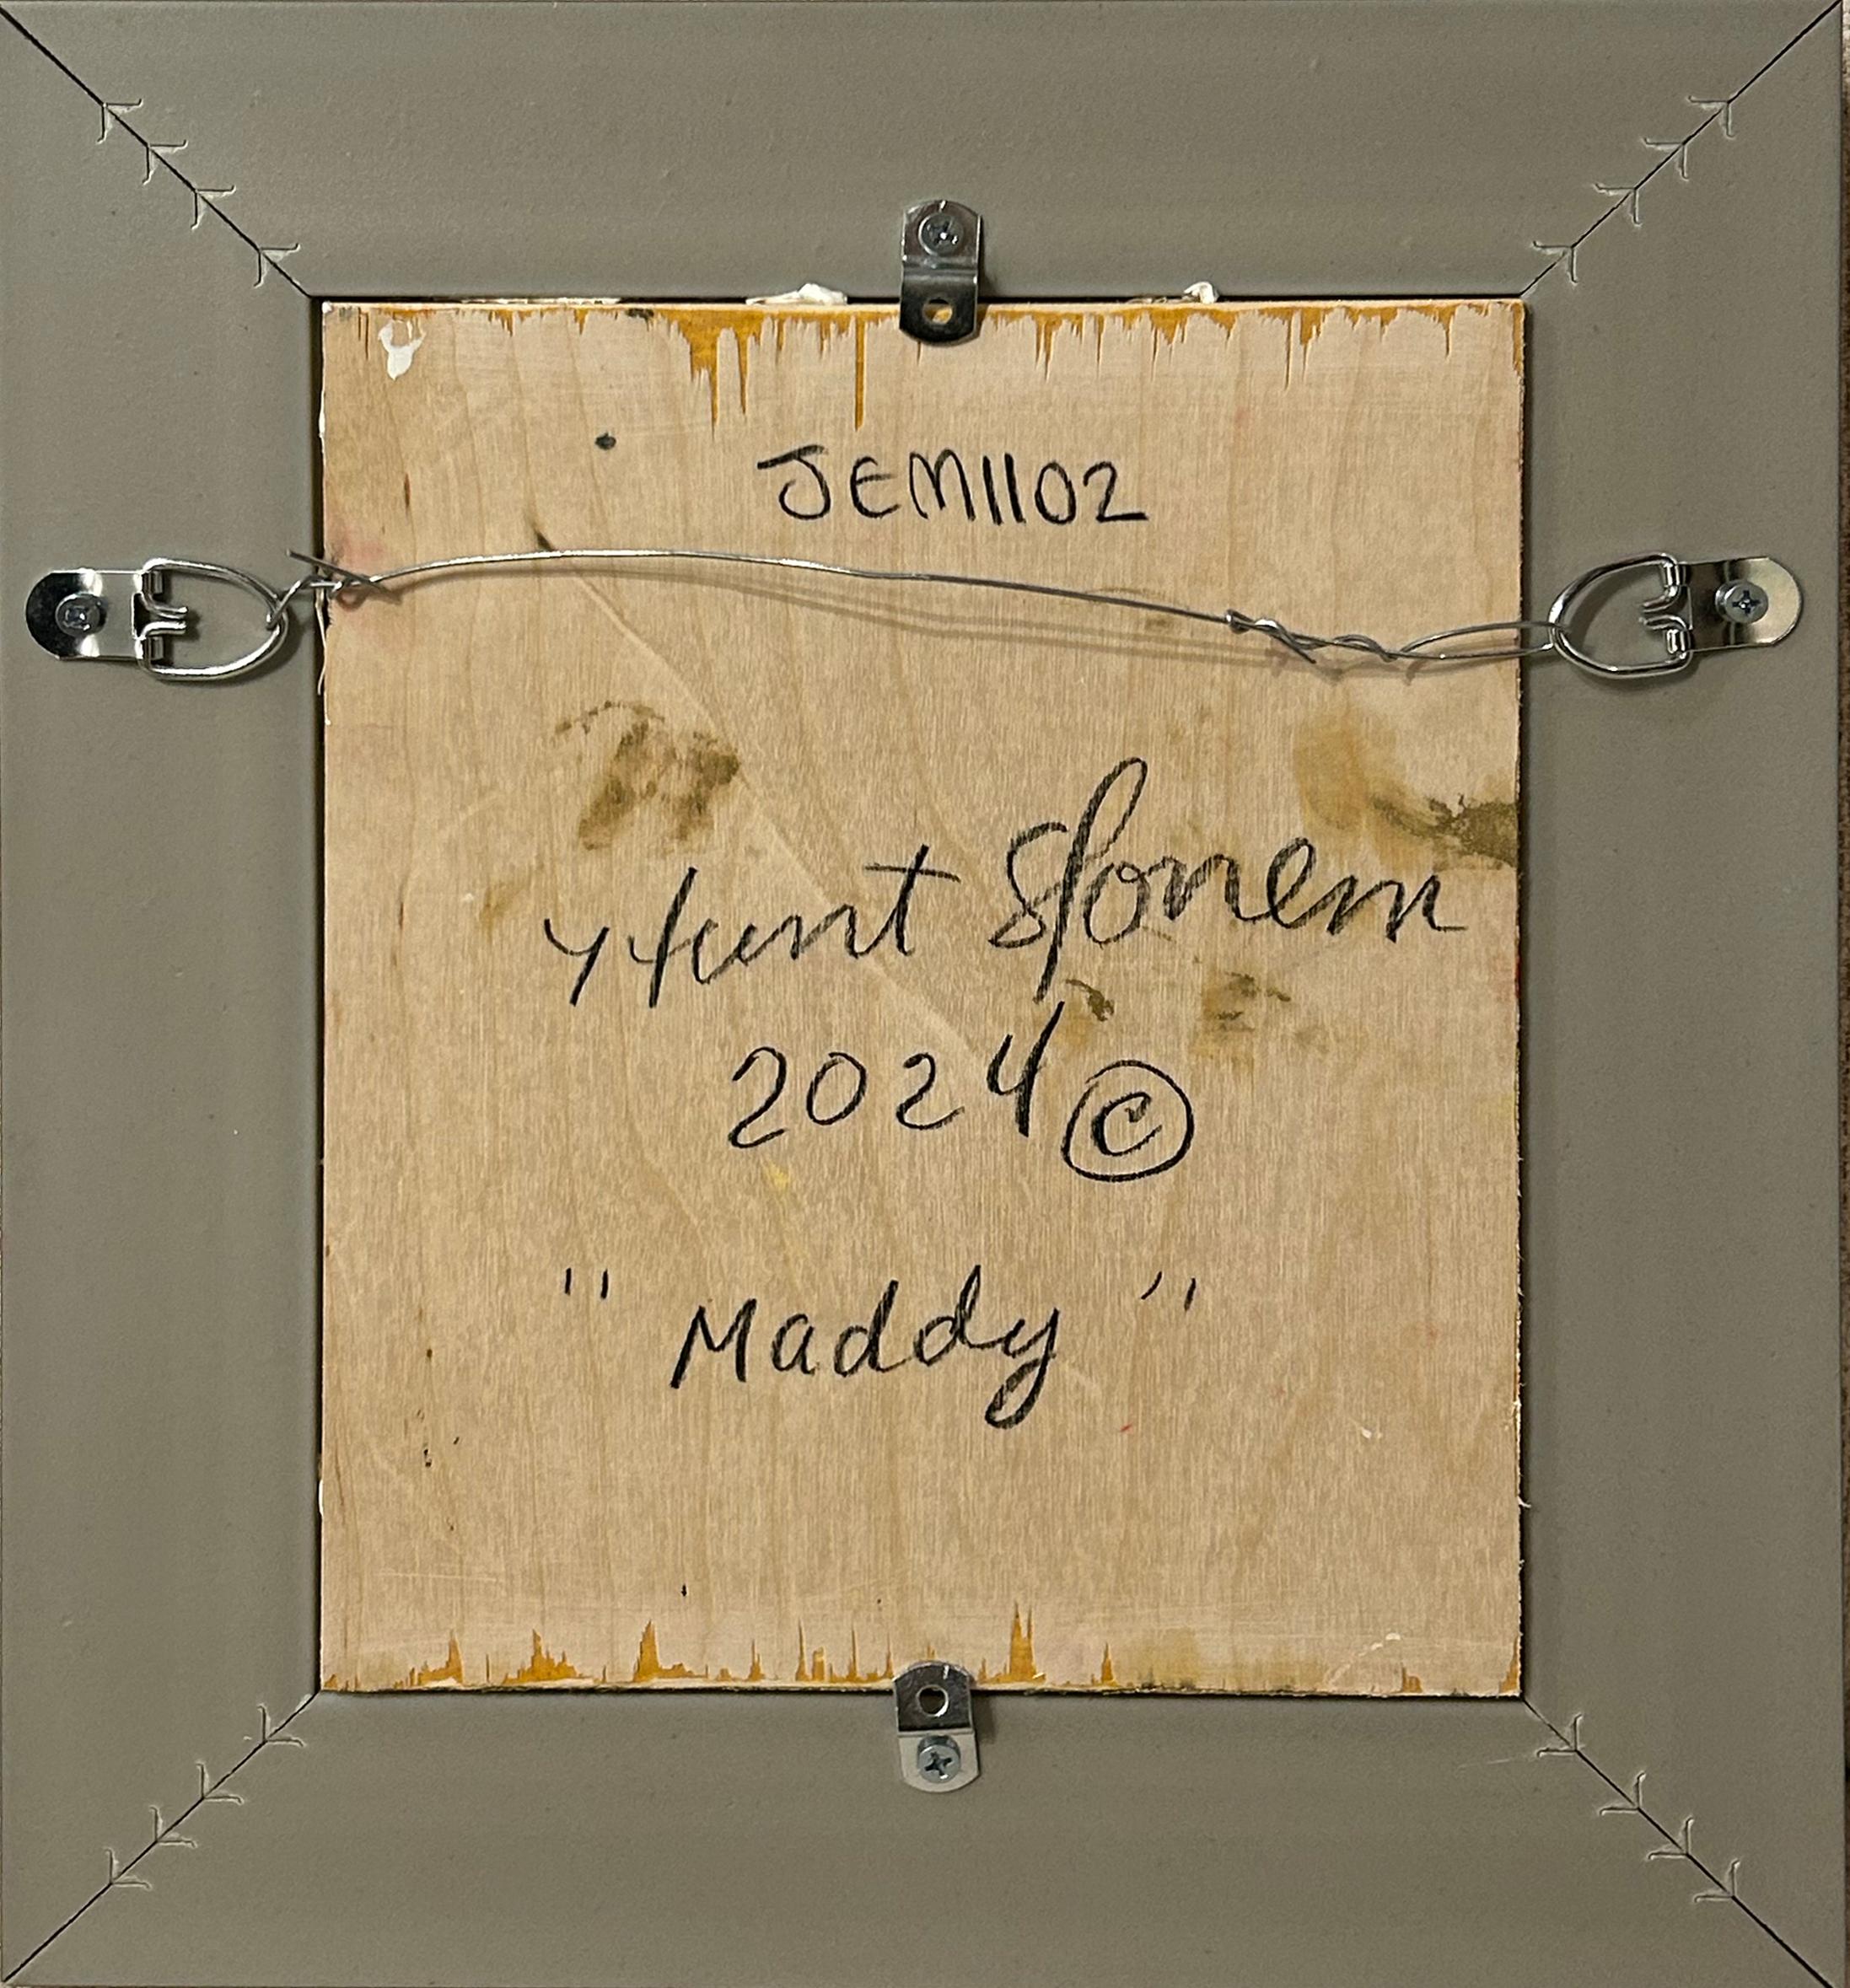 JEM1102
Hunt Slonem
2024 ©
"Maddy"